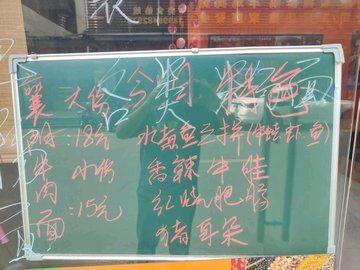 各类 面
襄 大份 今日特色
阳 :18元 水煮鱼三拼(牛蛙虾鱼)
牛 小份 香辣牛蛙
肉 :15元 红烧肥肠
面 猪耳朵